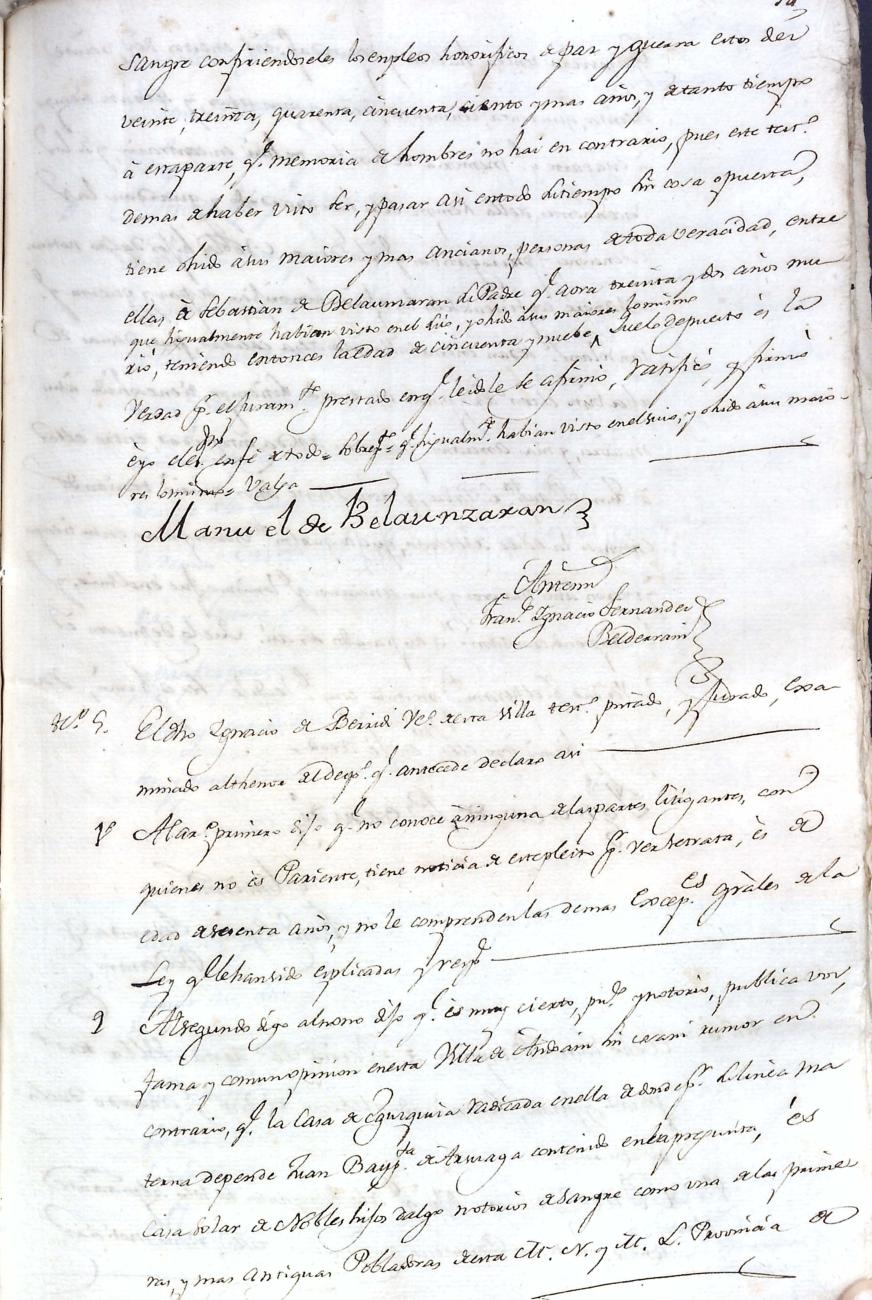 Sangre confiriendoseles los enpleos honorificos de paz y guerra estos de
veinte, treinta, quarenta, cinquenta, ciento y mas años, y de tanto tiempo
à esta parte, q.e memoria de hombres no hai en contrario, pues este test.o
demas de haber visto ser, y pasar asi en todo su tiempo sin cosa opuesta,
tiene ohido à sus maiores y mas ancianos, personas de toda veracidad, entre
ellas à Sebastian de Belaunzaran su Padre q.e aora treinta y dos años mu
que higualmente habian visto en el suio, y ohido a sus maiores lo mismo
rió, teniendo entonces la edad de cinquenta y nuebe, ^ que lo depuesto es la
Verdad p.r el juram.to prestado en q.e leidole se afirmó, ratificó, y firmó
è yo el es.no en fe de todo = sobrep.to = q.e higualm.te habian visto en el suio, y ohido à sus maio-
res lo mismo = Valga
Manuel de Belaunzaran
Antemi
Fran.co Ignacio Fernandez
Belderrain
tt.o 5.
El dho Ignacio de Berridi Vez.o de esta Villa test.o pntado, y jurado, exa
minado al thenor del dep.o q.e antecede declaro asi
1.o
A la r.e primero dijo q.e no conoce à ninguna de las partes litigantes, con
quienes no es Pariente, tiene noticia de este pleito p.r ver se trata, es de
edad de sesenta años, y no le comprenden las demas Excep.es grâles de la
Ley q.e le han sido esplicadas y resp.e
2
Al segundo digo al nono dijo q.e es muy cierto, pu.co y notorio, publica voz,
fama y comun opinion en esta Villa de Andoain sin cosa ni rumor en
contrario, q.e la Casa de Eguzquiza radicada en ella de donde p.r su linea ma
terna depende Juan Bap.ta de Arteaga contenido en la pregunta, es
Casa Solar de Nobles hijos dalgo notorios de sangre como una de las prime
ras, y mas antiguas Pobladoras de esta M. N. y M. L. Provincia de